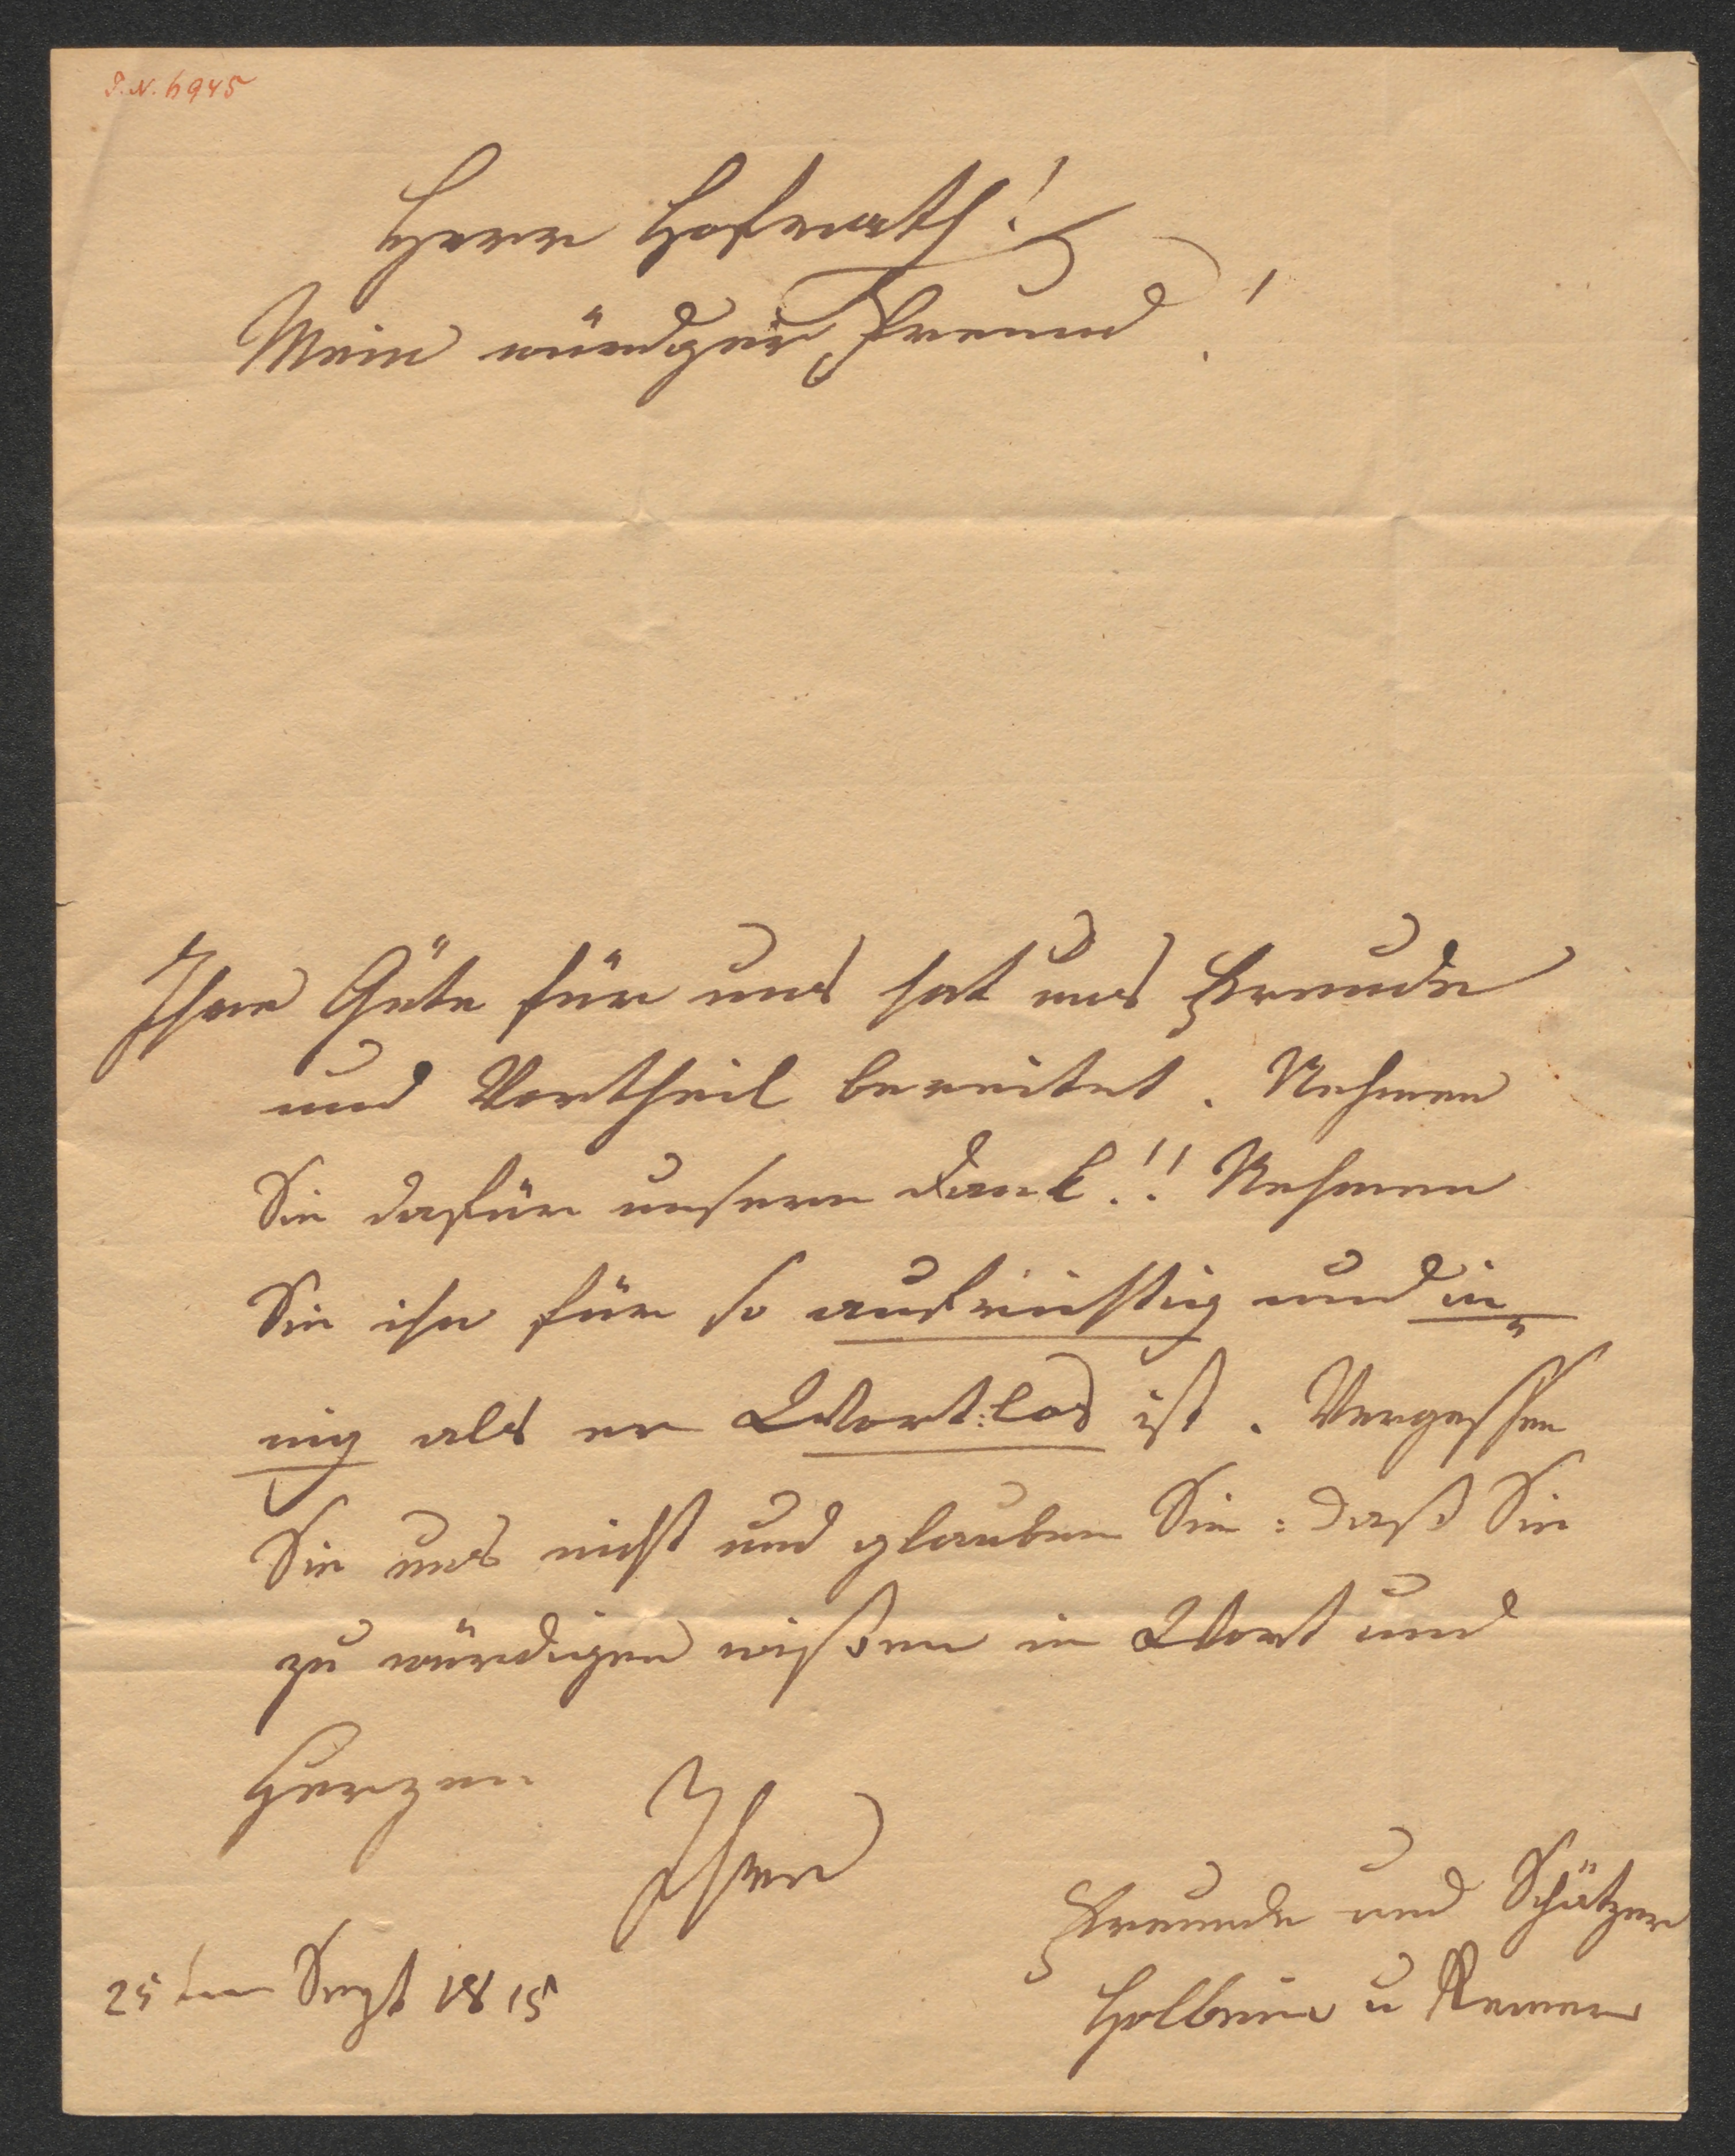 I.N. 6945
Herr Hofrath!
Mein würdger Freund!
Ihre Güte für uns hat uns Freude
und Vortheil bereitet. Nehmen
Sie dafür unsern Dank!! Nehmen
Sie ihn für so aufrichtig und in„
nig als er Wort:los ist. Vergessen
Sie uns nicht und glauben Sie: daß Sie
zu würdigen wißen in Wort und
Herzen
Ihre
Freunde und Schätzer
25ten Sept 1815
Holbein u Renner